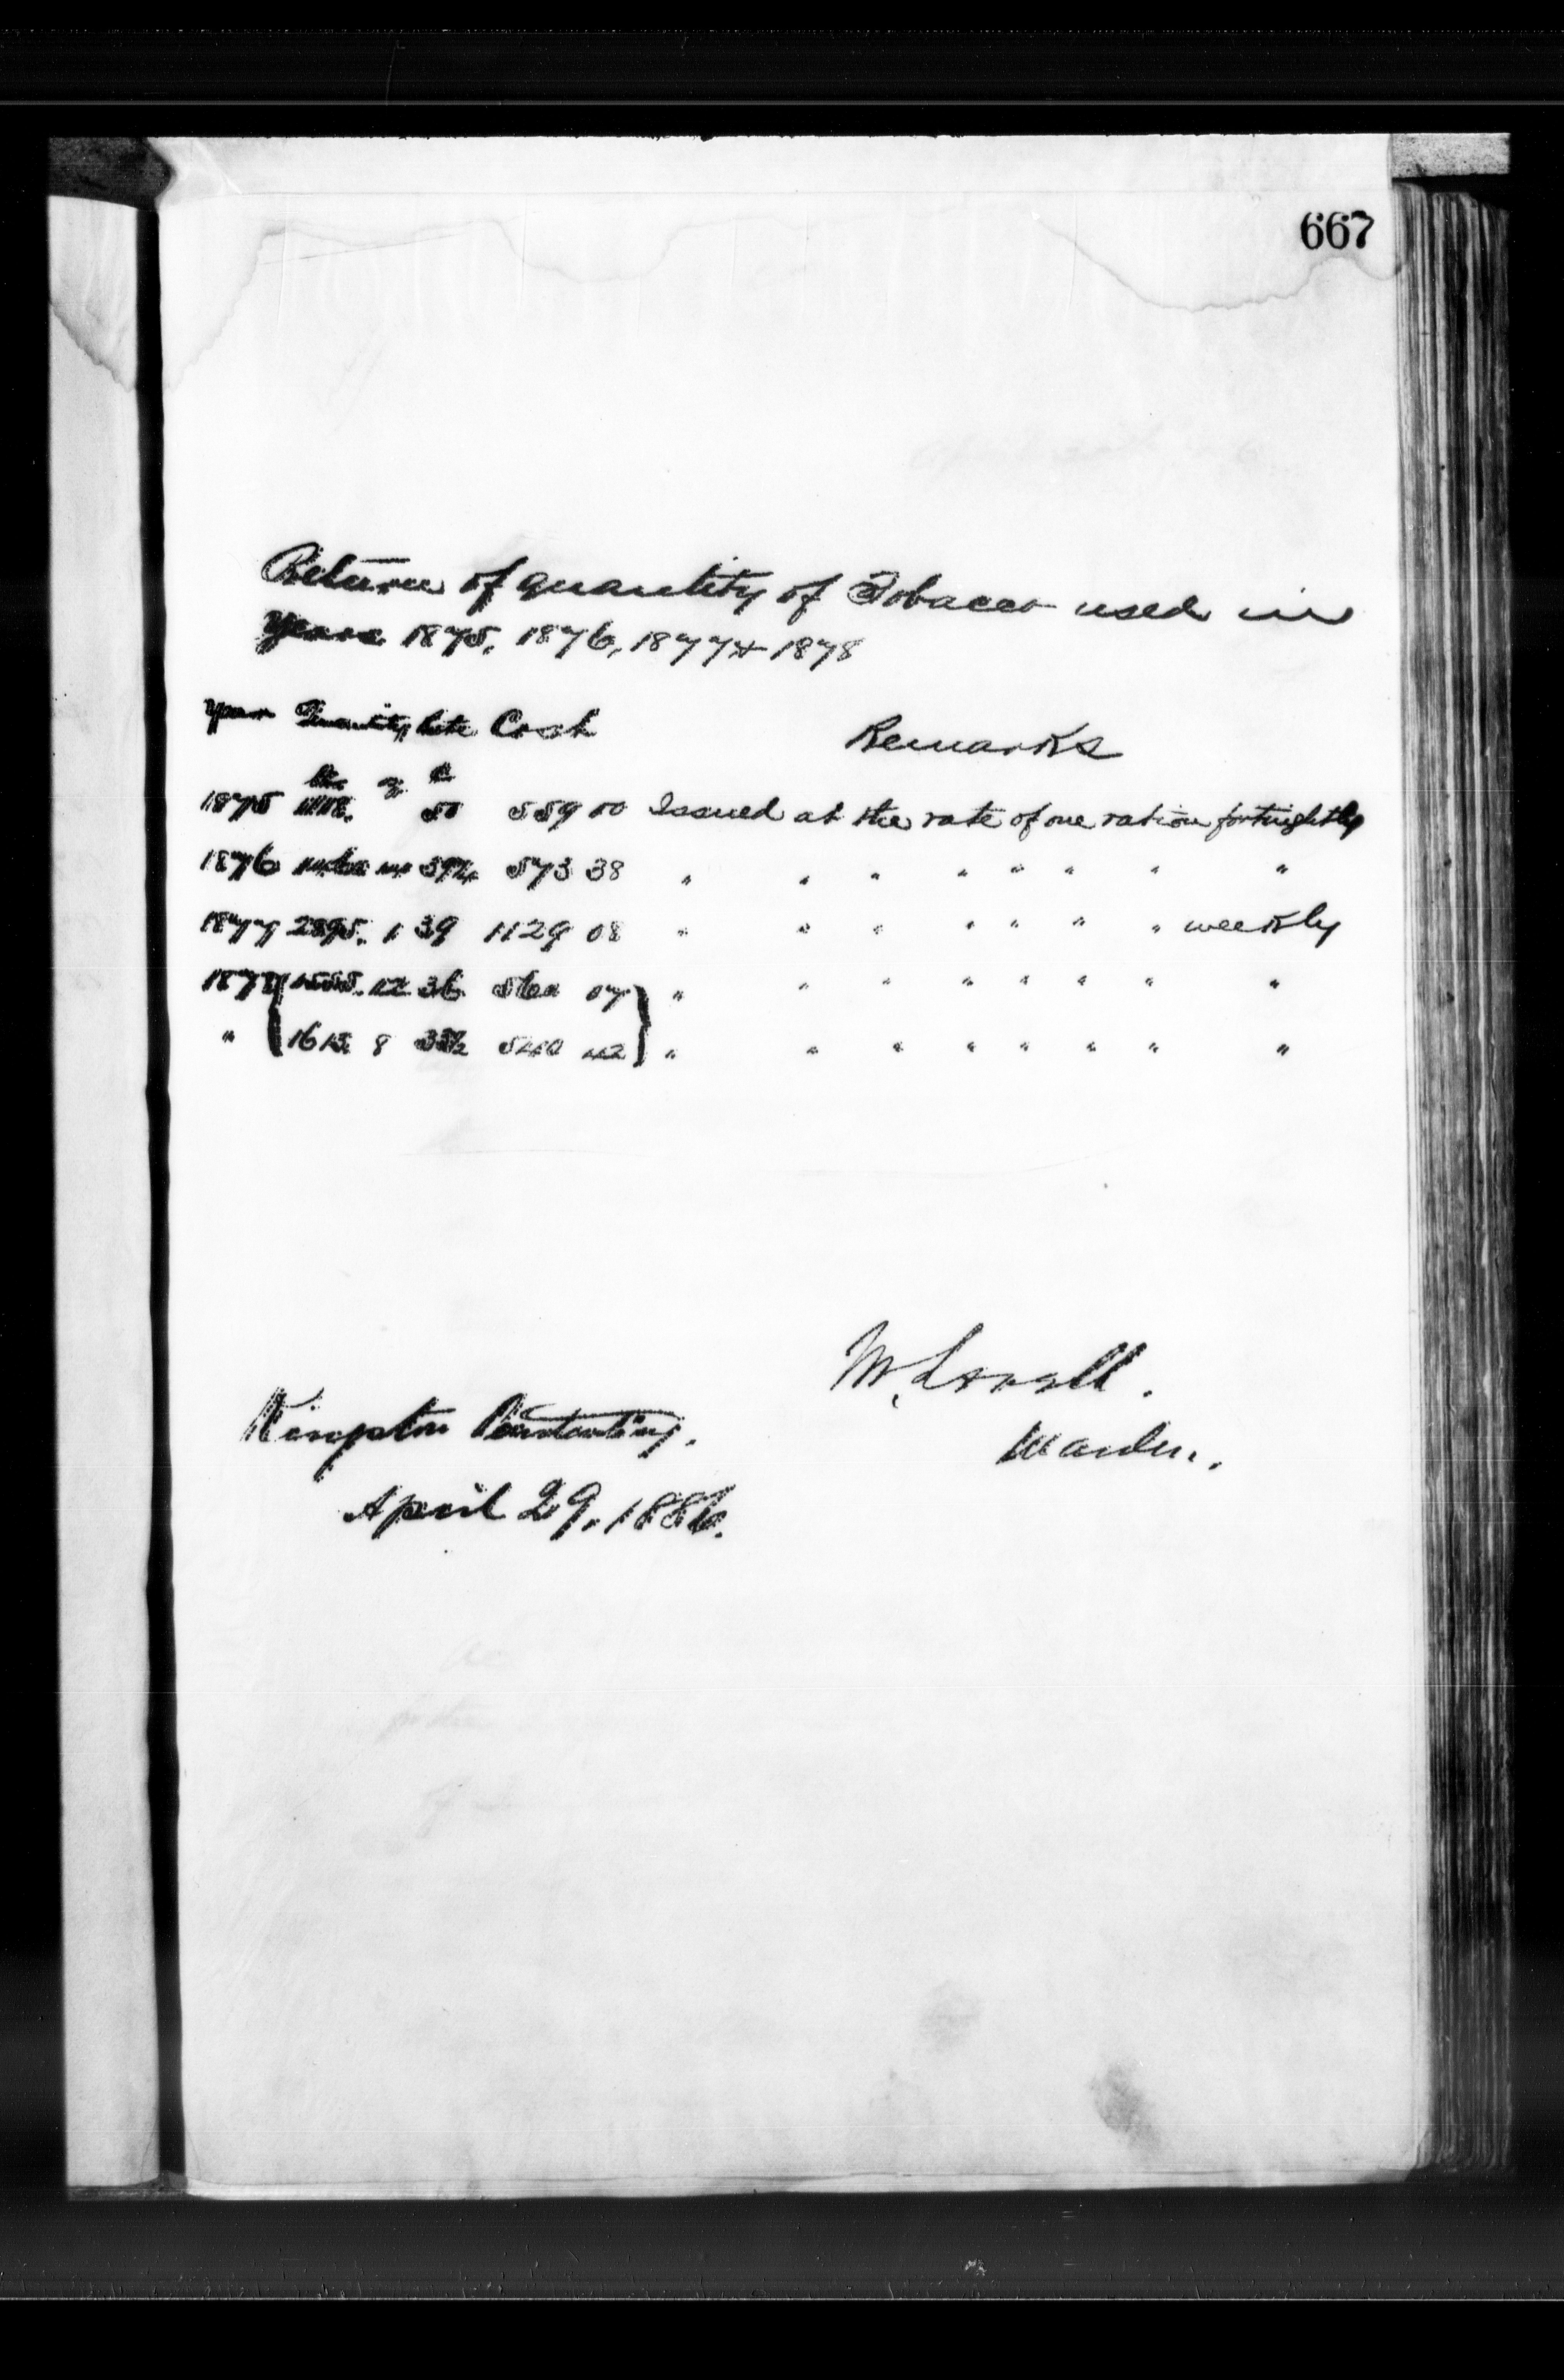 667
Return of quantity of Tobacco used in
Years 1875, 1876, 1877 & 1878
Year Quantity Rate Cost Remarks
lbs oz c
1875 1118. 50 559 00 Issued at the rate of one ration fortnightly
1876 1460 14 39¼ 573 38 " " " " " " " "
1877 2895. 1 39 1129 08 " " " " " " " weekly
1878 1555. 12 36 560 07 " " " " " " " "
" 1613 8 33½ 540 42 " " " " " " " "
M. Lavell.
Warden.
Kingston Penitentiary.
April 29, 1886.